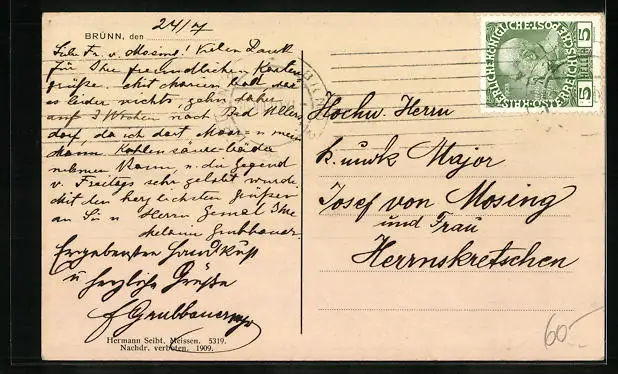 BRÜNN, den 24/7
Liebe Fr. v. Mosing! Vielen Dank
für Ihre freundlichen Karten
grüße. Mit
es leider nichts, gehn daher
auf 3 Wochen nach Bad Ullers
dorf, da ich dort Moor- u mein
Mann Kohlensäure bäder
nehmen kann, u. die Gegend
v. Freitags sehr gelobt wurde.
Mit den herzlichsten Grüßen
an Sie u Herrn Gemal Ihre
Melanie Grubbauer.
Ergebensten Handkuß
u herzliche Grüße
Grubbauer
Hermann Seibt, Meissen. 5319.
Nachdr. verboten. 1909.
5 HELLER 5
Hochw. Herrn
k. und k. Major
Josef von Mosing
und Frau
Herrnskretschen
60-